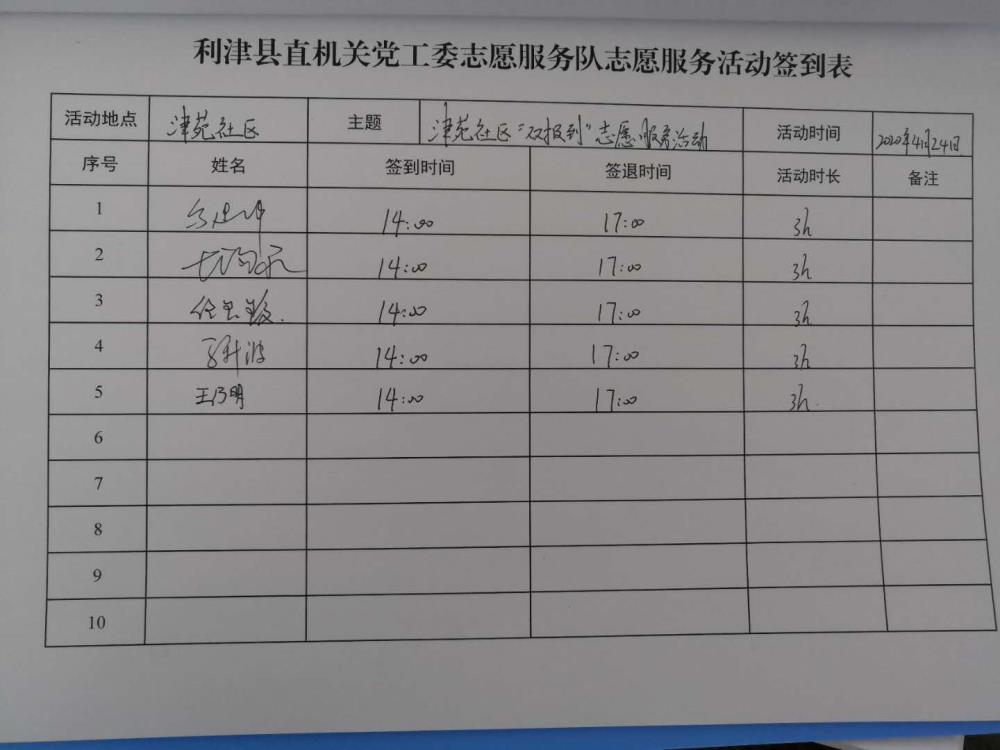 利津县直机关党工委志愿服务队志愿服务活动签到表
活动地点 津苑社区 主题 津苑社区“双报到”志愿服务活动 活动时间 2020年4月24日
序号 姓名 签到时间 签退时间 活动时长 备注
1 14:00 17:00 3h
2 14:00 17:00 3h
3 14:00 17:00 3h
4 14:00 17:00 3h
5 王乃明 14:00 17:00 3h
6
7
8
9
10